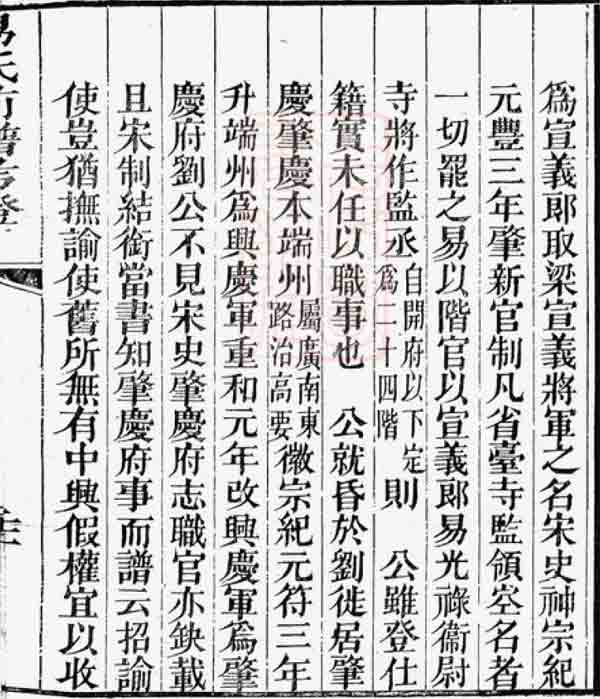 爲宣義郞取梁宣義將軍之名宋史神宗紀
元豐三年肇新官制凡省臺寺監領空名者
一切罷之易以階官以宣義郞易光祿衞尉
寺將作監丞自開府以下定爲二十四階則　公雖登仕
籍實未任以職事也　公就昏於劉徙居肇
慶肇慶本端州屬廣南東路治高要徽宗紀元符三年
升端州爲興慶軍重和元年改興慶軍爲肇
慶府劉公不見宋史肇慶府志職官亦缺載
且宋制結銜當書知肇慶府事而譜云招諭
使豈猶撫諭使舊所無有中興假權宜以收